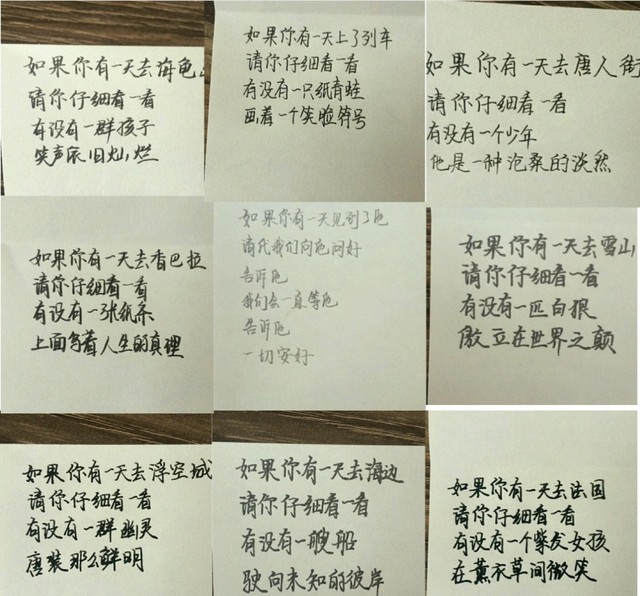 如果你有一天去海龟
请你仔细看一看
有没有一群孩子
笑声依旧灿烂
如果你有一天上了列车
请你仔细看一看
有没有一只纸青蛙
画着一个笑脸符号
如果你有一天去唐人街
请你仔细看一看
有没有一个少年
他是一种沧桑的淡然
如果你有一天去香巴拉
请你仔细看一看
有没有一张纸条
上面写着人生的真理
如果你有一天见到了他
请代我们向他问好
告诉他
我们会一直等他
告诉他
一切安好
如果你有一天去雪山
请你仔细看一看
有没有一匹白狼
傲立在世界之巅
如果你有一天去浮空城
请你仔细看一看
有没有一群幽灵
唐装那么鲜明
如果你有一天去海边
请你仔细看一看
有没有一艘船
驶向未知的彼岸
如果你有一天去法国
请你仔细看一看
有没有一个紫发女孩
在薰衣草间微笑